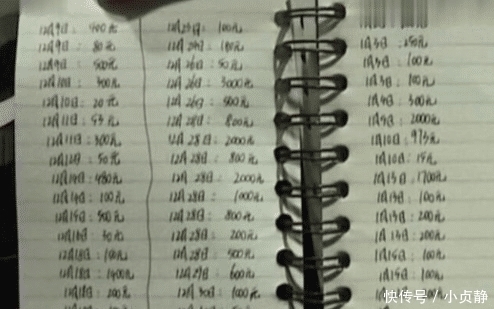 12月9日：400元
12月9日：80元
12月9日：500元
12月10日：300元
12月10日：20元
12月11日：53元
12月11日：300元
12月12日：50元
12月14日：480元
12月14日：100元
12月15日：500元
12月18日：30元
12月18日：100元
12月18日：1400元
12月18日：200元
12月25日：100元
12月26日：100元
12月26日：50元
12月26日：3000元
12月26日：500元
12月28日：800元
12月28日：2000元
12月28日：800元
12月28日：2000元
12月28日：1000元
12月28日：800元
12月28日：200元
12月28日：500元
12月29日：600元
12月30日：1000元
1月3日：250元
1月3日：100元
1月3日：100元
1月9日：300元
1月9日：2000元
1月10日：975元
1月10日：15元
1月13日：1700元
1月13日：100元
1月13日：200元
1月13日：200元
1月15日：100元
1月15日：100元
快传号 / 小贞静